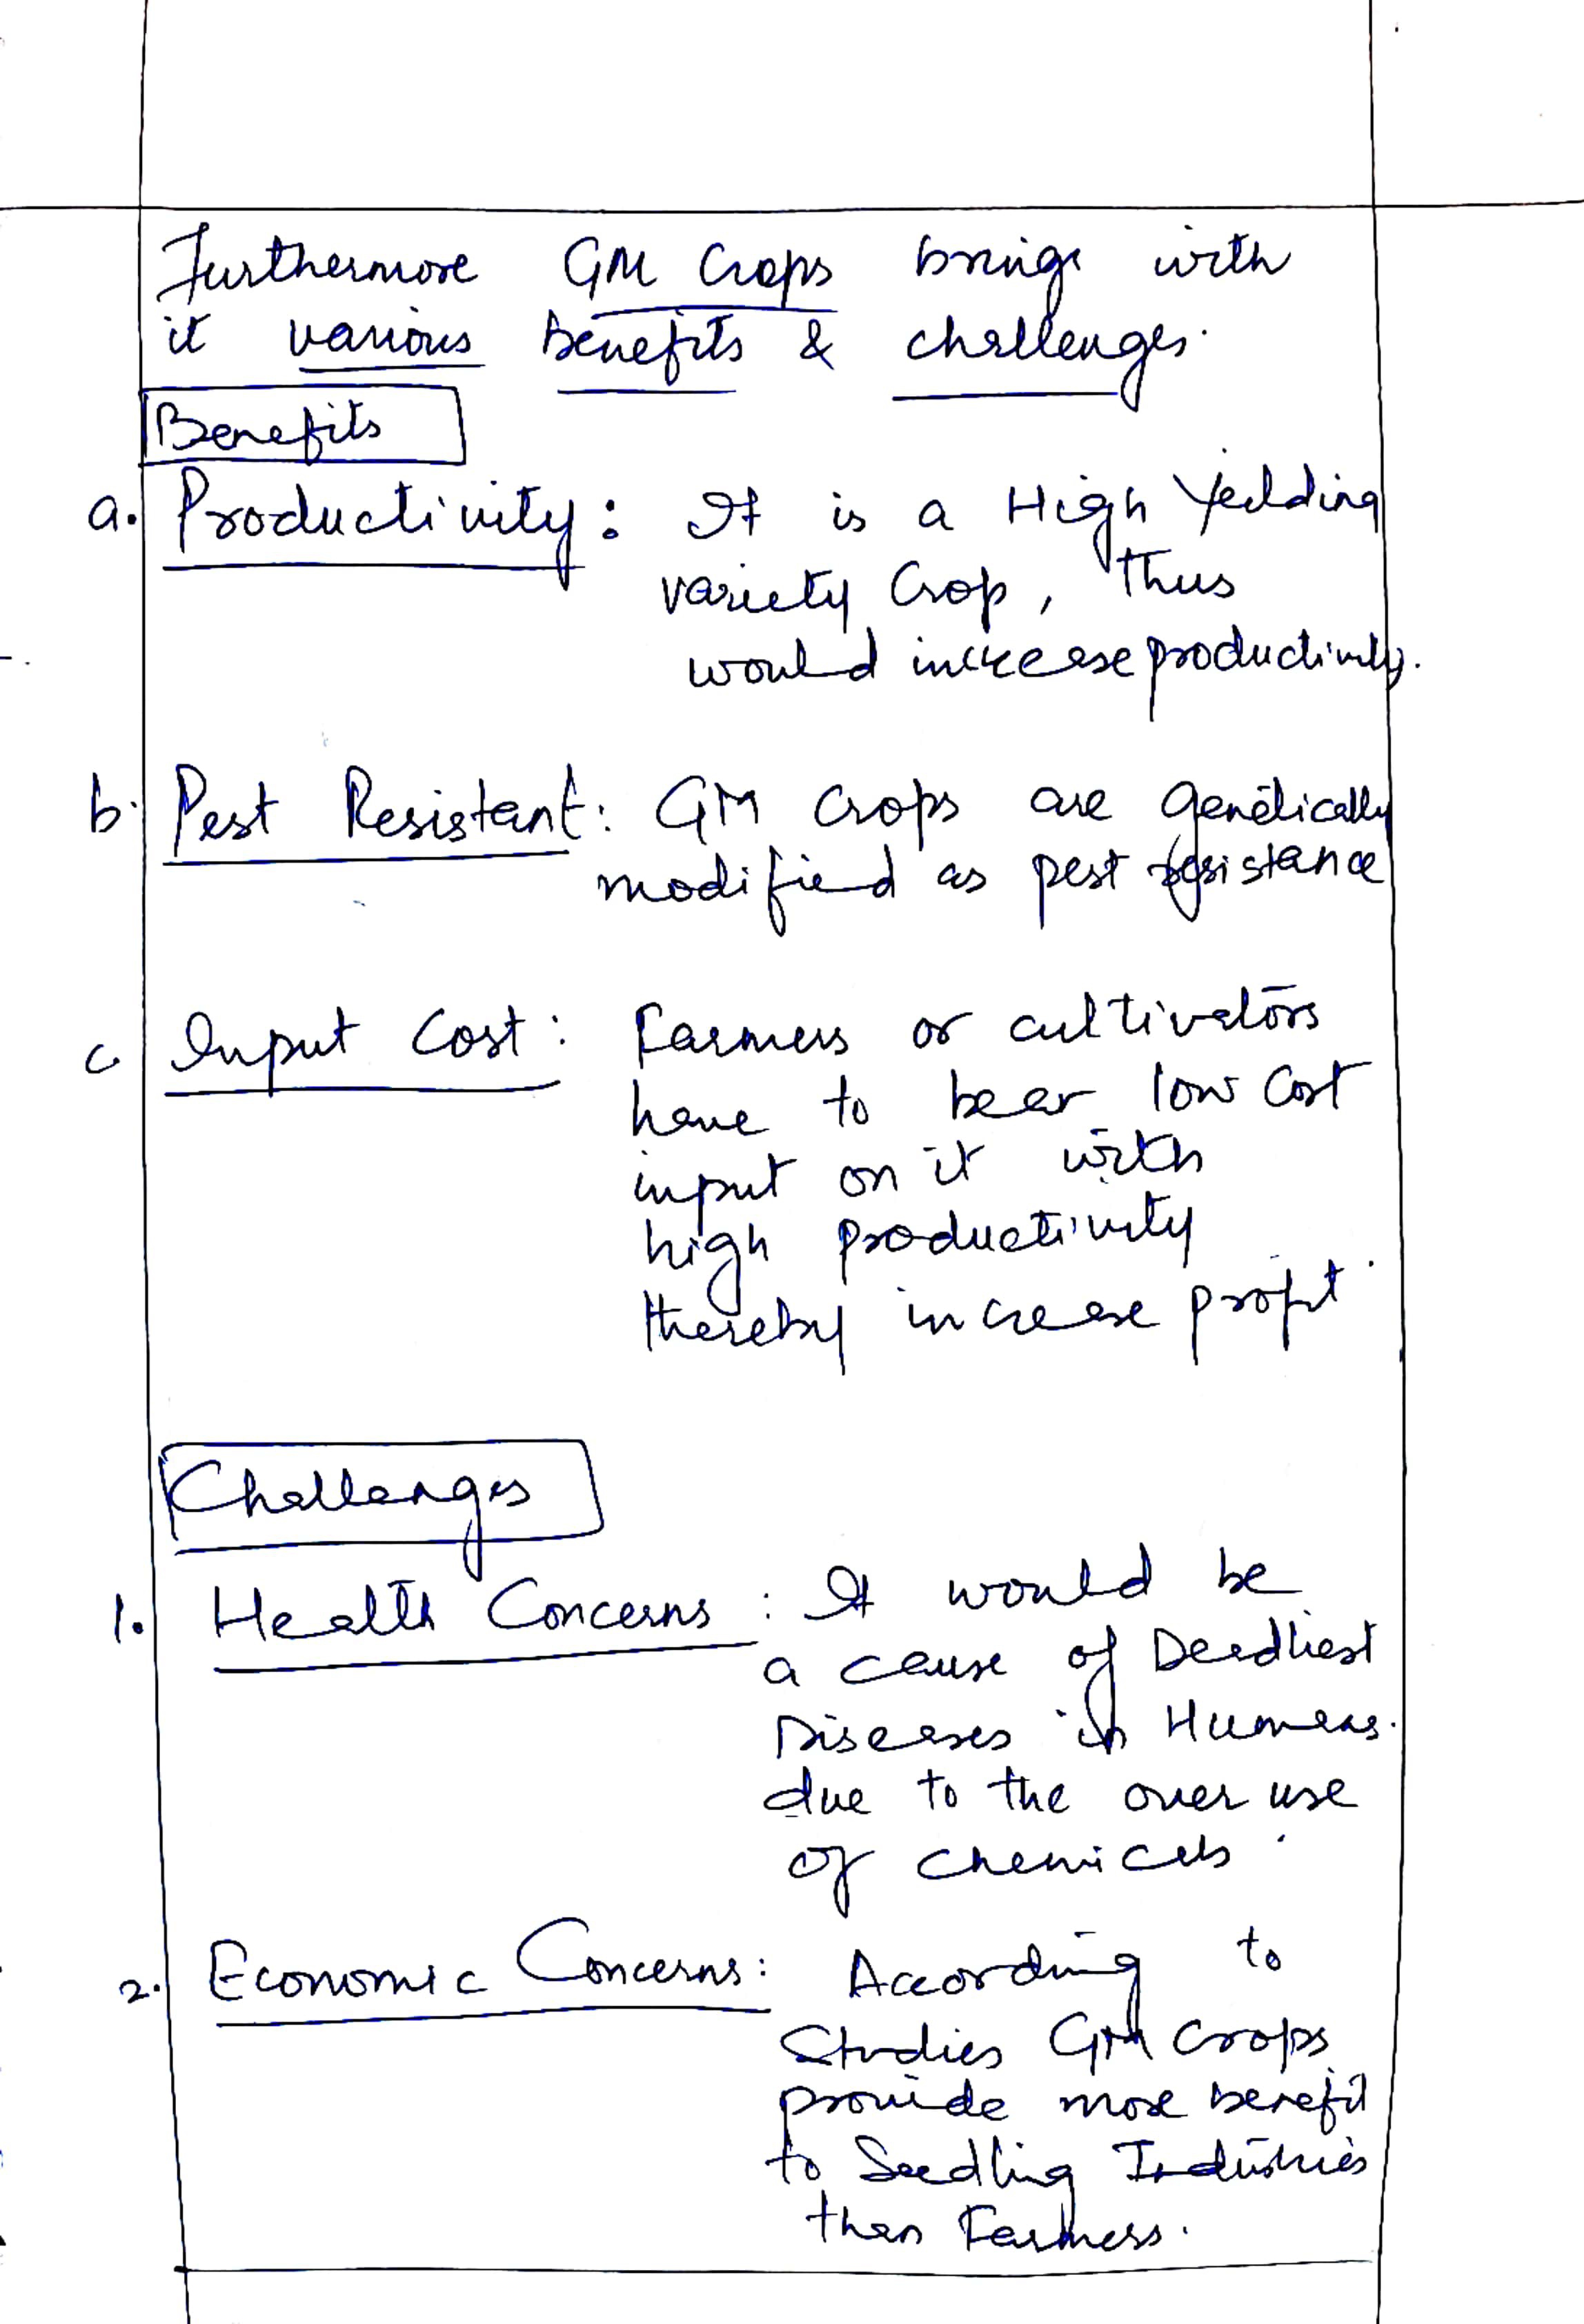 Furthermore GM Crops brings with
it various benefits & challenges.
Benefits
a. Productivity: It is a High Yeilding
variety Crop, thus
would increase productivity.
b. Pest Resistant: GM Crops are genetically
modified as pest resistance
c. Input Cost: Farmers or cultivators
have to bear low Cost
input on it with
high productivity
thereby increase profit.
Challenges
1. Health Concerns: It would be
a cause of Deadliest
Diseases in Humans.
due to the over use
of chemicals.
2. Economic Concerns: According to
Studies GM Crops
provide more benefit
to Seedling Industries
then Farmers.